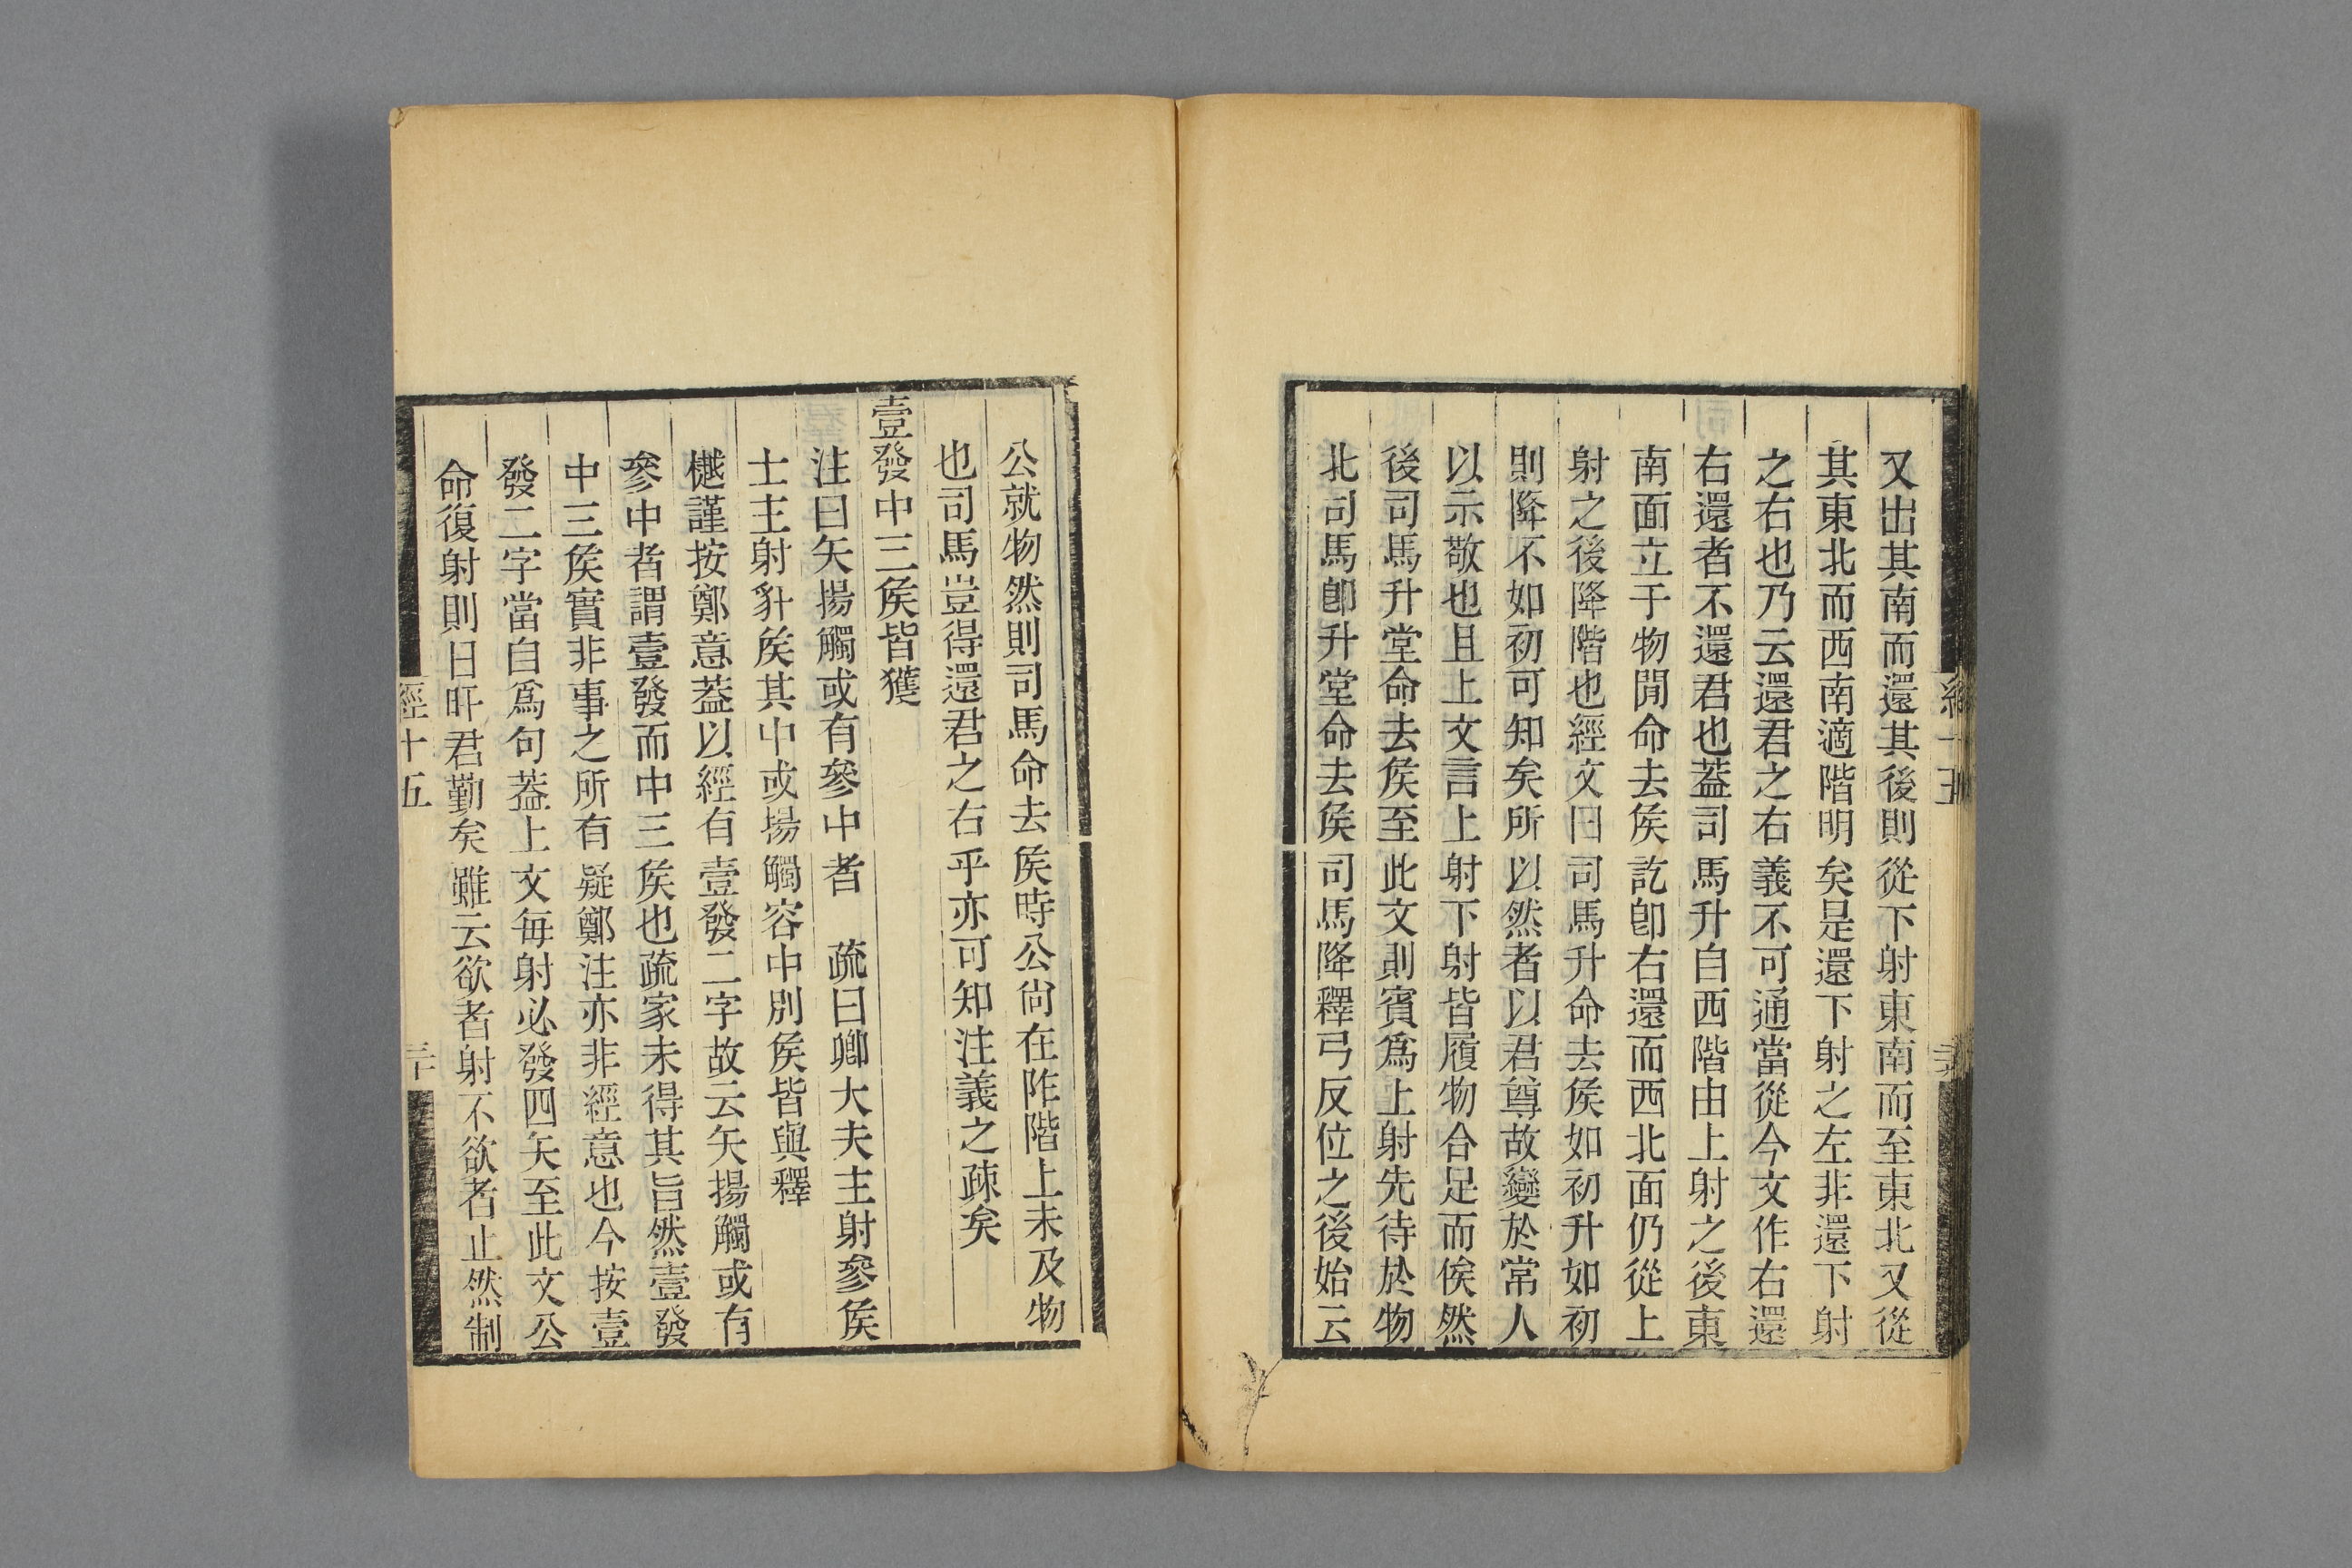 又出其南而還其後則從下射東南而至東北又從
其東北而西南適階明矣是還下射之左非還下射
之右也乃云還君之右義不可通當從今文作右還
右還者不還君也葢司馬升自西階由上射之後東
南面立于物閒命去矦訖卽右還而西北面仍從上
射之後降階也經文曰司馬升命去矦如初升如初
則降不如初可知矣所以然者以君尊故變於常人
以示敬也且上文言上射下射皆履物合足而俟然
後司馬升堂命去矦至此文則賓爲上射先待於物
北司馬卽升堂命去矦司馬降釋弓反位之後始云
公就物然則司馬命去矦時公尙在阼階上未及物
也司馬豈得還君之右乎亦可知注義之疎矣
壹發中三矦皆獲
注曰矢揚觸或有參中者 疏曰卿大夫主射參矦
士主射豻矦其中或揚觸容中別矦皆與釋
樾謹按鄭意葢以經有壹發二字故云矢揚觸或有
參中者謂壹發而中三矦也疏家未得其旨然壹發
中三矦實非事之所有疑鄭注亦非經意也今按壹
發二字當自爲句葢上文每射必發四矢至此文公
命復射則日旰君勤矣雖云欲者射不欲者止然制
經十五
三十